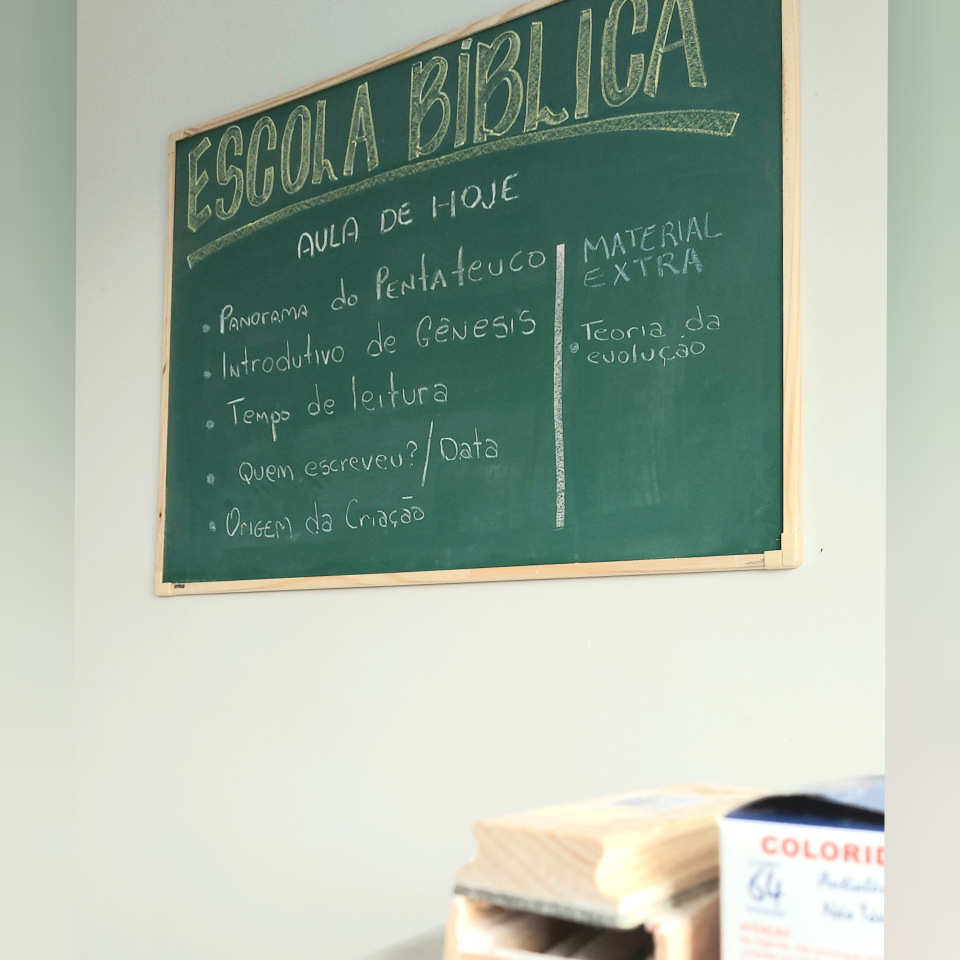 ESCOLA BÍBLICA
AULA DE HOJE
• PANORAMA do PENTATEUCO
• Introdutivo de GÊNESIS
• Tempo de leitura
• Quem escreveu? / Data
• ORIGEM da Criação
MATERIAL
EXTRA
• Teoria da
evolução
COLORID
64
Não